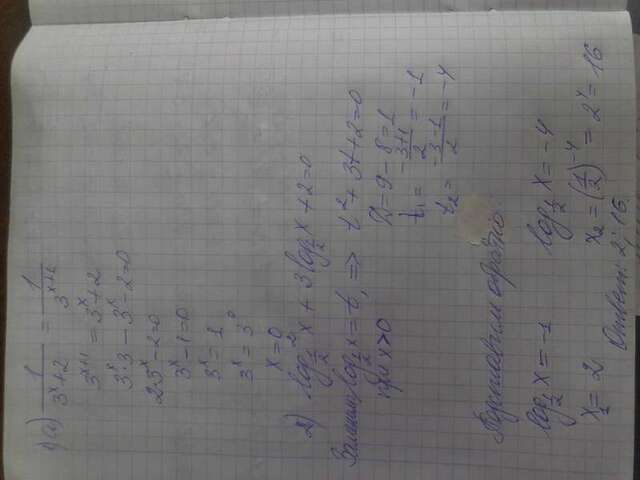 1) а) 1/(3^x+2) = 1/3^(x+1)
3^(x+1) = 3^x+2
3^x·3 - 3^x - 2=0
2·3^x - 2=0
3^x - 1=0
3^x = 1
3^x = 3^0
x=0
2) log²_(1/2) x + 3log_(1/2) x + 2=0
Замним, log_(1/2) x = t, => t²+3t+2=0
при x>0
D=9-8=1
t₁ = (-3+1)/2 = -1
t₂ = (-3-1)/2 = -4
Подставим обратно:
log_(1/2) x = -1 log_(1/2) x = -4
x₁ = 2 x₂ = (1/2)^(-4) = 2^4 = 16
Ответ: 2; 16.